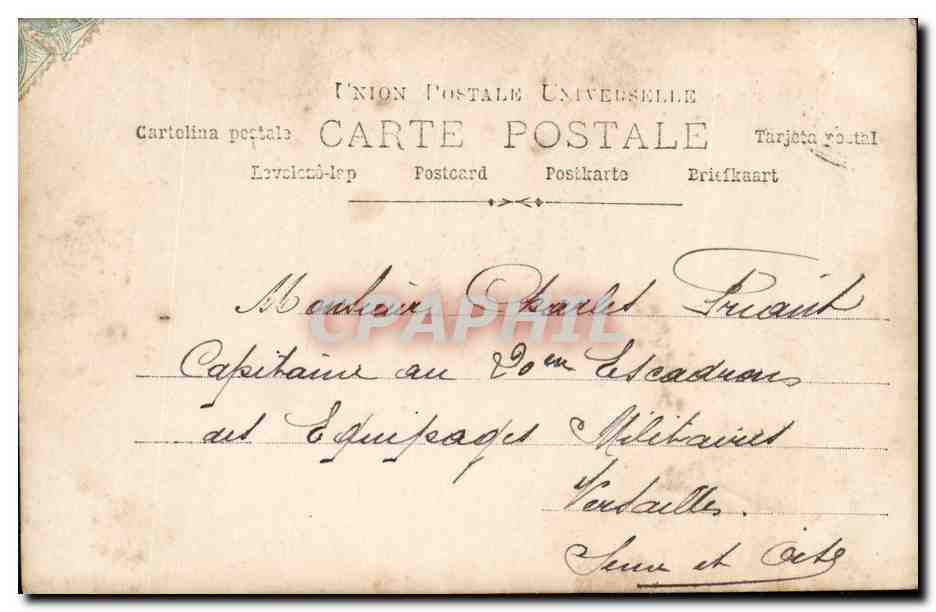 UNION POSTALE UNIVERSELLE
Cartolina postale CARTE POSTALE Tarjeta postal
Levelező-lap Postcard Postkarte Briefkaart
Monsieur Charles Friant
CPAPHIL
Capitaine au 20em Escadrons
des Equipages Militaires
Versailles.
Seine et Oise